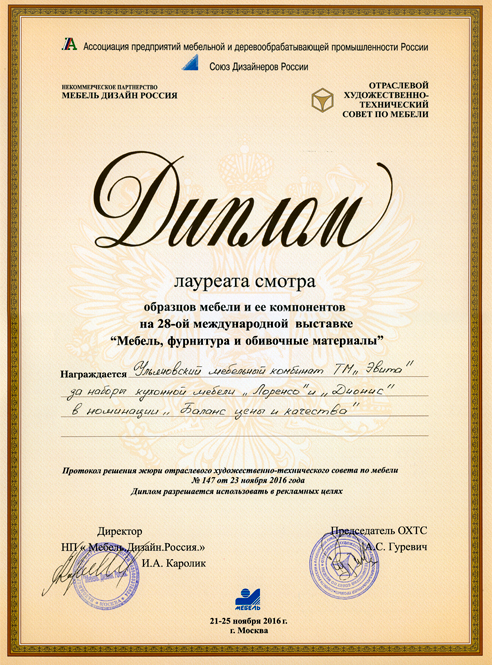 Ассоциация предприятий мебельной и деревообрабатывающей промышленности России
Союз Дизайнеров России
НЕКОММЕРЧЕСКОЕ ПАРТНЕРСТВО
МЕБЕЛЬ ДИЗАЙН РОССИЯ
ОТРАСЛЕВОЙ
ХУДОЖЕСТВЕННО-
ТЕХНИЧЕСКИЙ
СОВЕТ ПО МЕБЕЛИ
Диплом
лауреата смотра
образцов мебели и ее компонентов
на 28-ой международной выставке
“Мебель, фурнитура и обивочные материалы”
Награждается Ульяновский мебельный комбинат ТМ „Эвита"
за наборы кухонной мебели „Лоренсо" и „Дионис"
в номинации „Баланс цены и качества"
Протокол решения жюри отраслевого художественно-технического совета по мебели
№ 147 от 23 ноября 2016 года
Диплом разрешается использовать в рекламных целях
Директор
НП « Мебель.Дизайн.Россия.»
И.А. Каролик
Председатель ОХТС
А.С. Гуревич
МЕБЕЛЬ
21-25 ноября 2016 г.
г. Москва